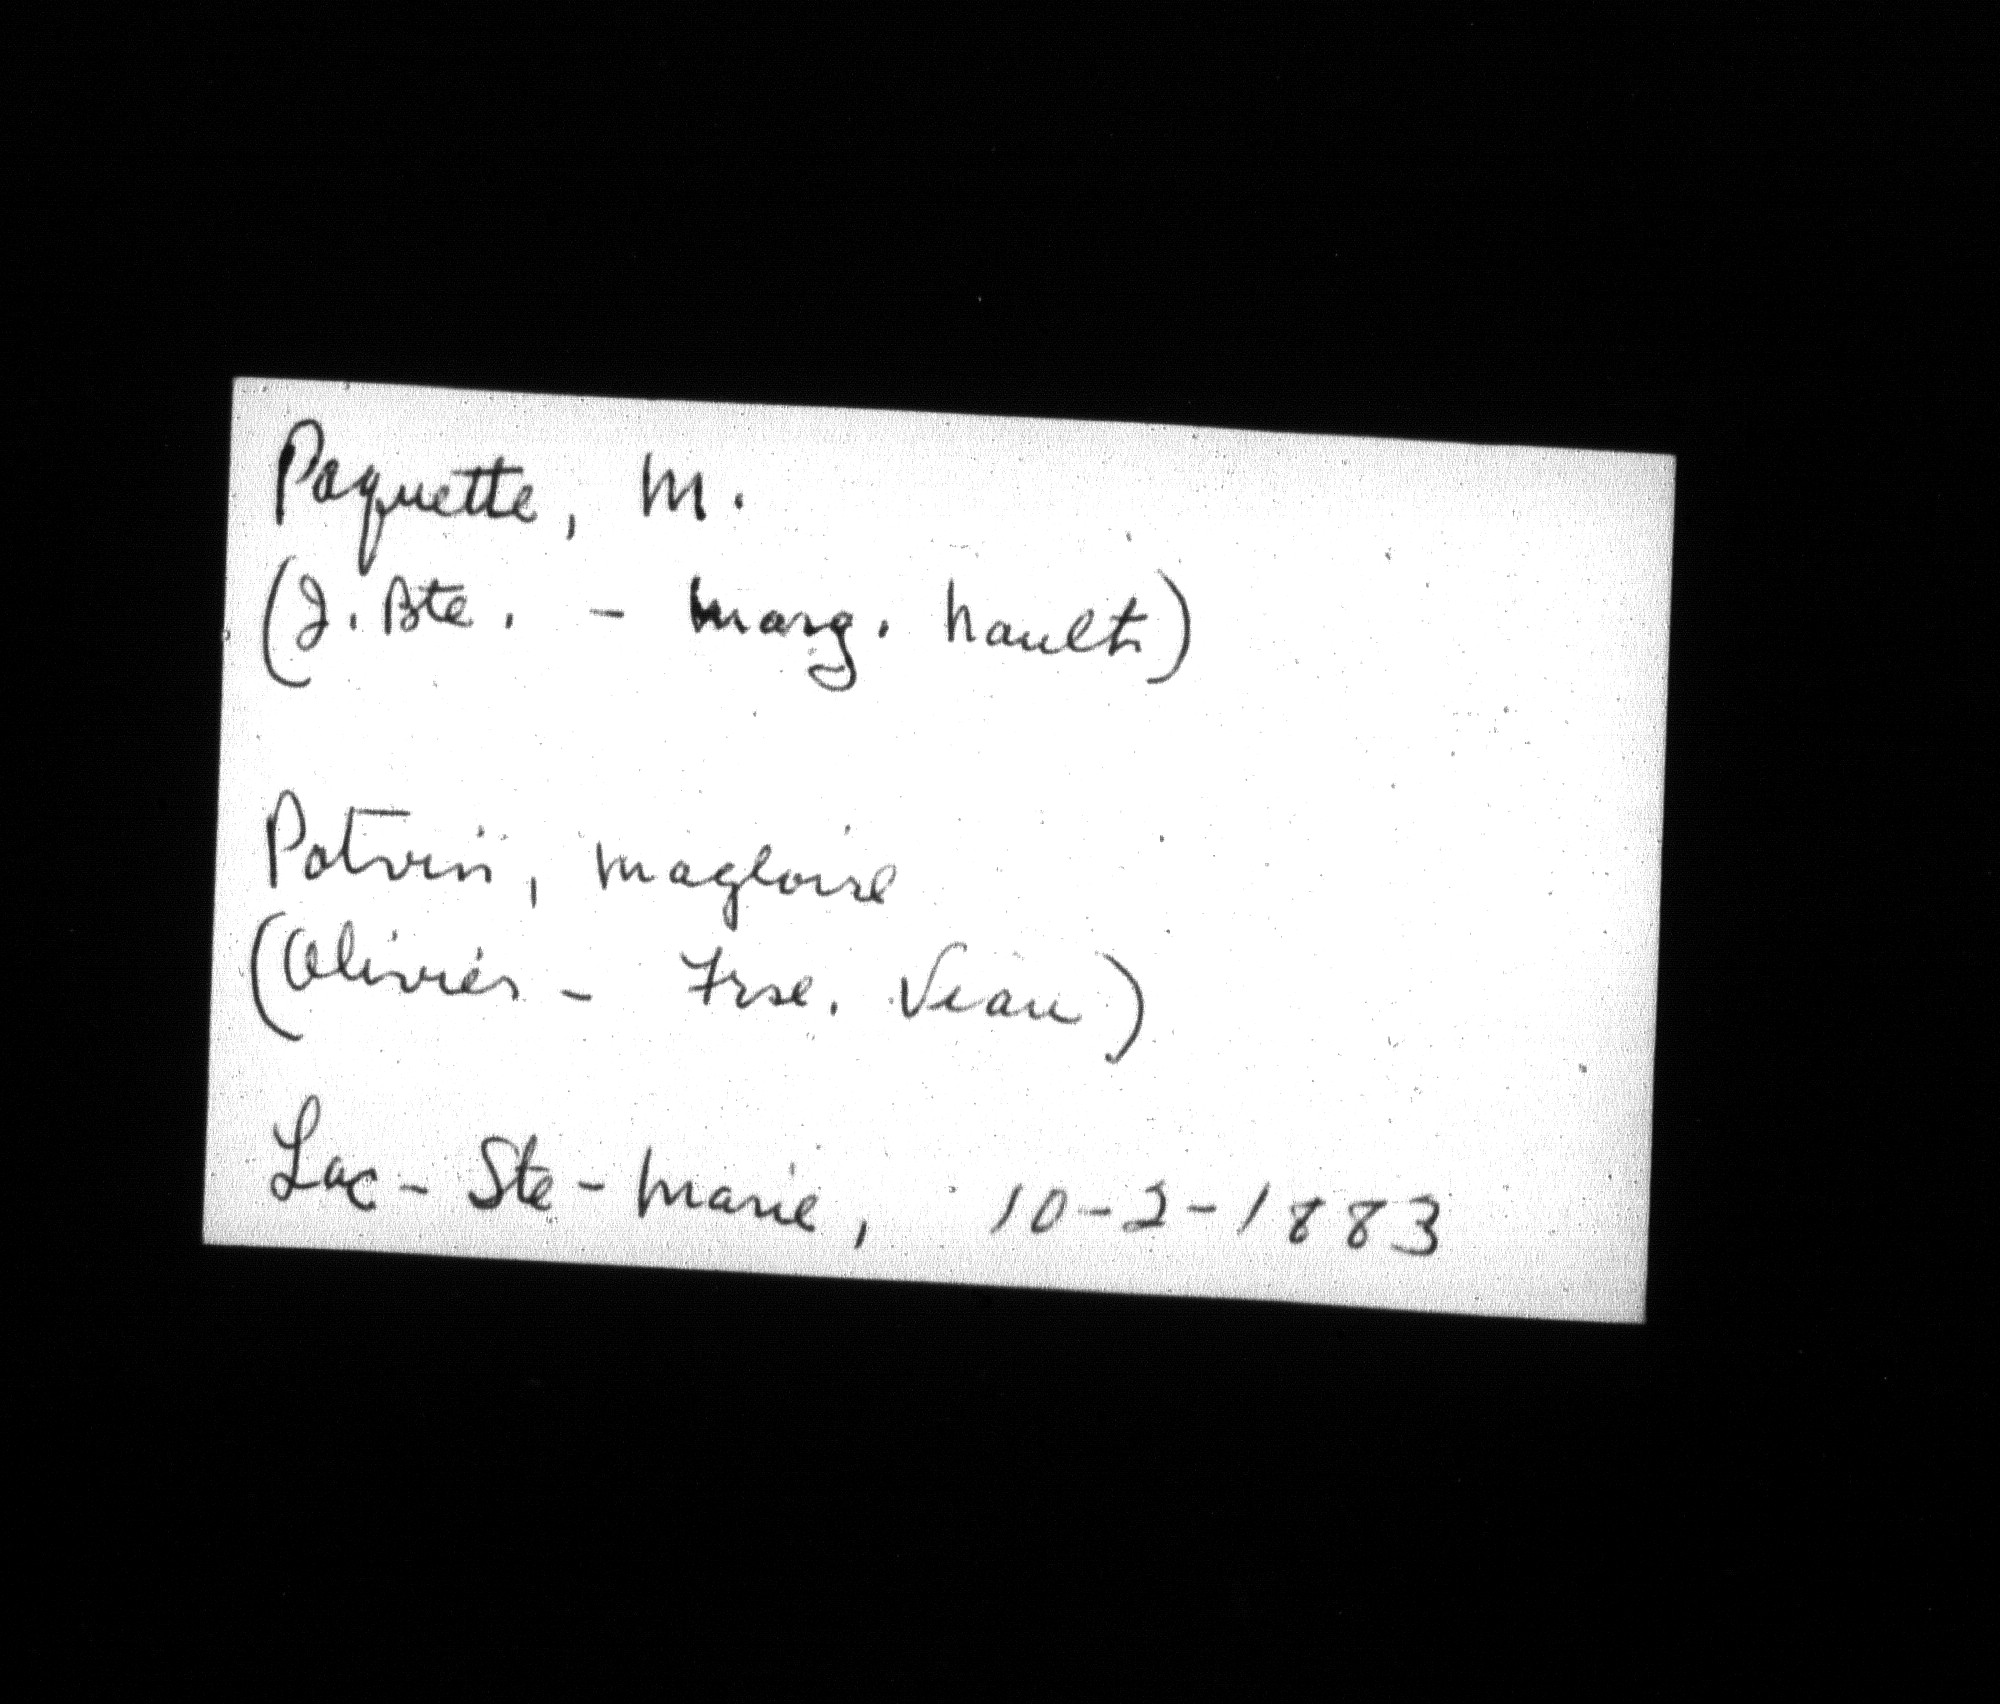 Paquette, M.
(J. Bte. - Marg. Nault)
Potvin, Magloire
(Olivier - Frse. Veau)
Lac-Ste-Marie, 10-2-1883